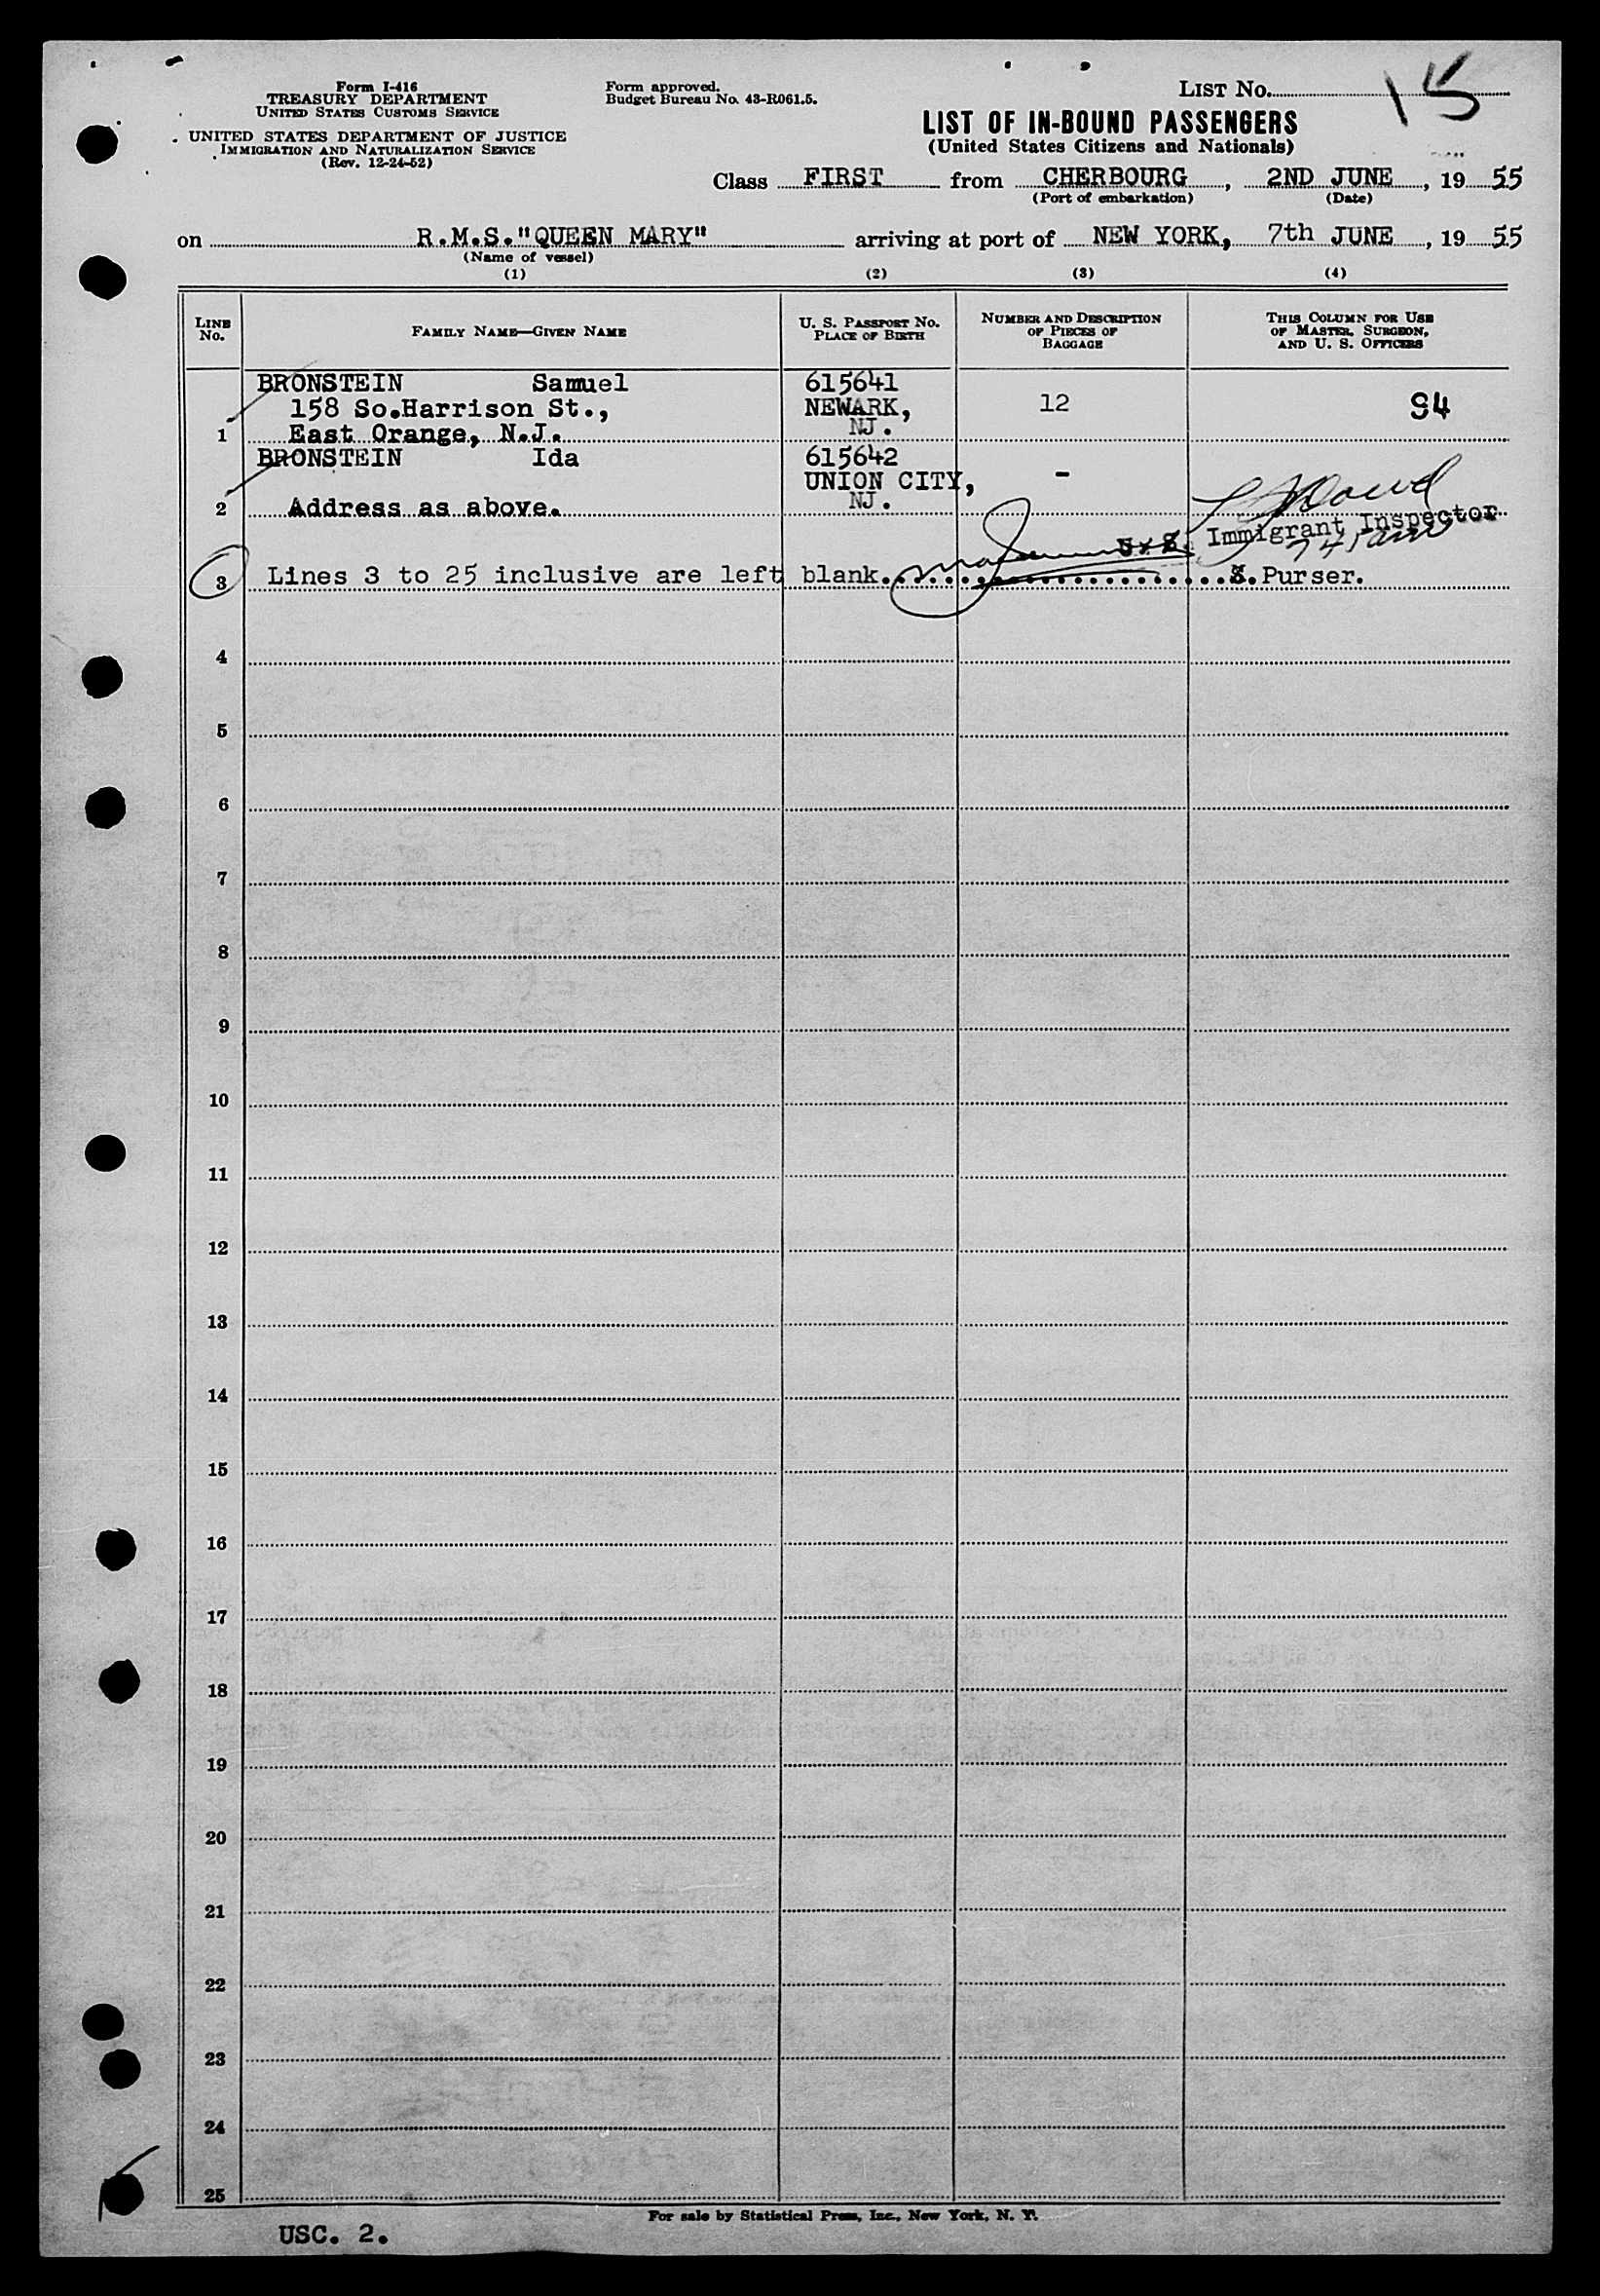 Form I-416
TREASURY DEPARTMENT
UNITED STATES CUSTOMS SERVICE
UNITED STATES DEPARTMENT OF JUSTICE
IMMIGRATION AND NATURALIZATION SERVICE
(Rev. 12-24-52)
Form approved.
Budget Bureau No. 43-R061.5.
LIST NO. 15
LIST OF IN-BOUND PASSENGERS
(United States Citizens and Nationals)
Class FIRST from CHERBOURG, 2ND JUNE, 19 55
(Port of embarkation) (Date)
on R.M.S."QUEEN MARY" arriving at port of NEW YORK, 7th JUNE, 19 55
(Name of vessel)
(1) (2) (3) (4)
LINE No. FAMILY NAME—GIVEN NAME U. S. PASSPORT NO. PLACE OF BIRTH NUMBER AND DESCRIPTION OF PIECES OF BAGGAGE THIS COLUMN FOR USE OF MASTER, SURGEON, AND U. S. OFFICERS
BRONSTEIN Samuel 615641
158 So.Harrison St., NEWARK, 12 94
1 East Orange, N.J. NJ.
BRONSTEIN Ida 615642
UNION CITY, -
2 Address as above. NJ.
U. S. Immigrant Inspector
3 Lines 3 to 25 inclusive are left blank. Purser.
4
5
6
7
8
9
10
11
12
13
14
15
16
17
18
19
20
21
22
23
24
25
For sale by Statistical Press, Inc., New York, N. Y.
USC. 2.